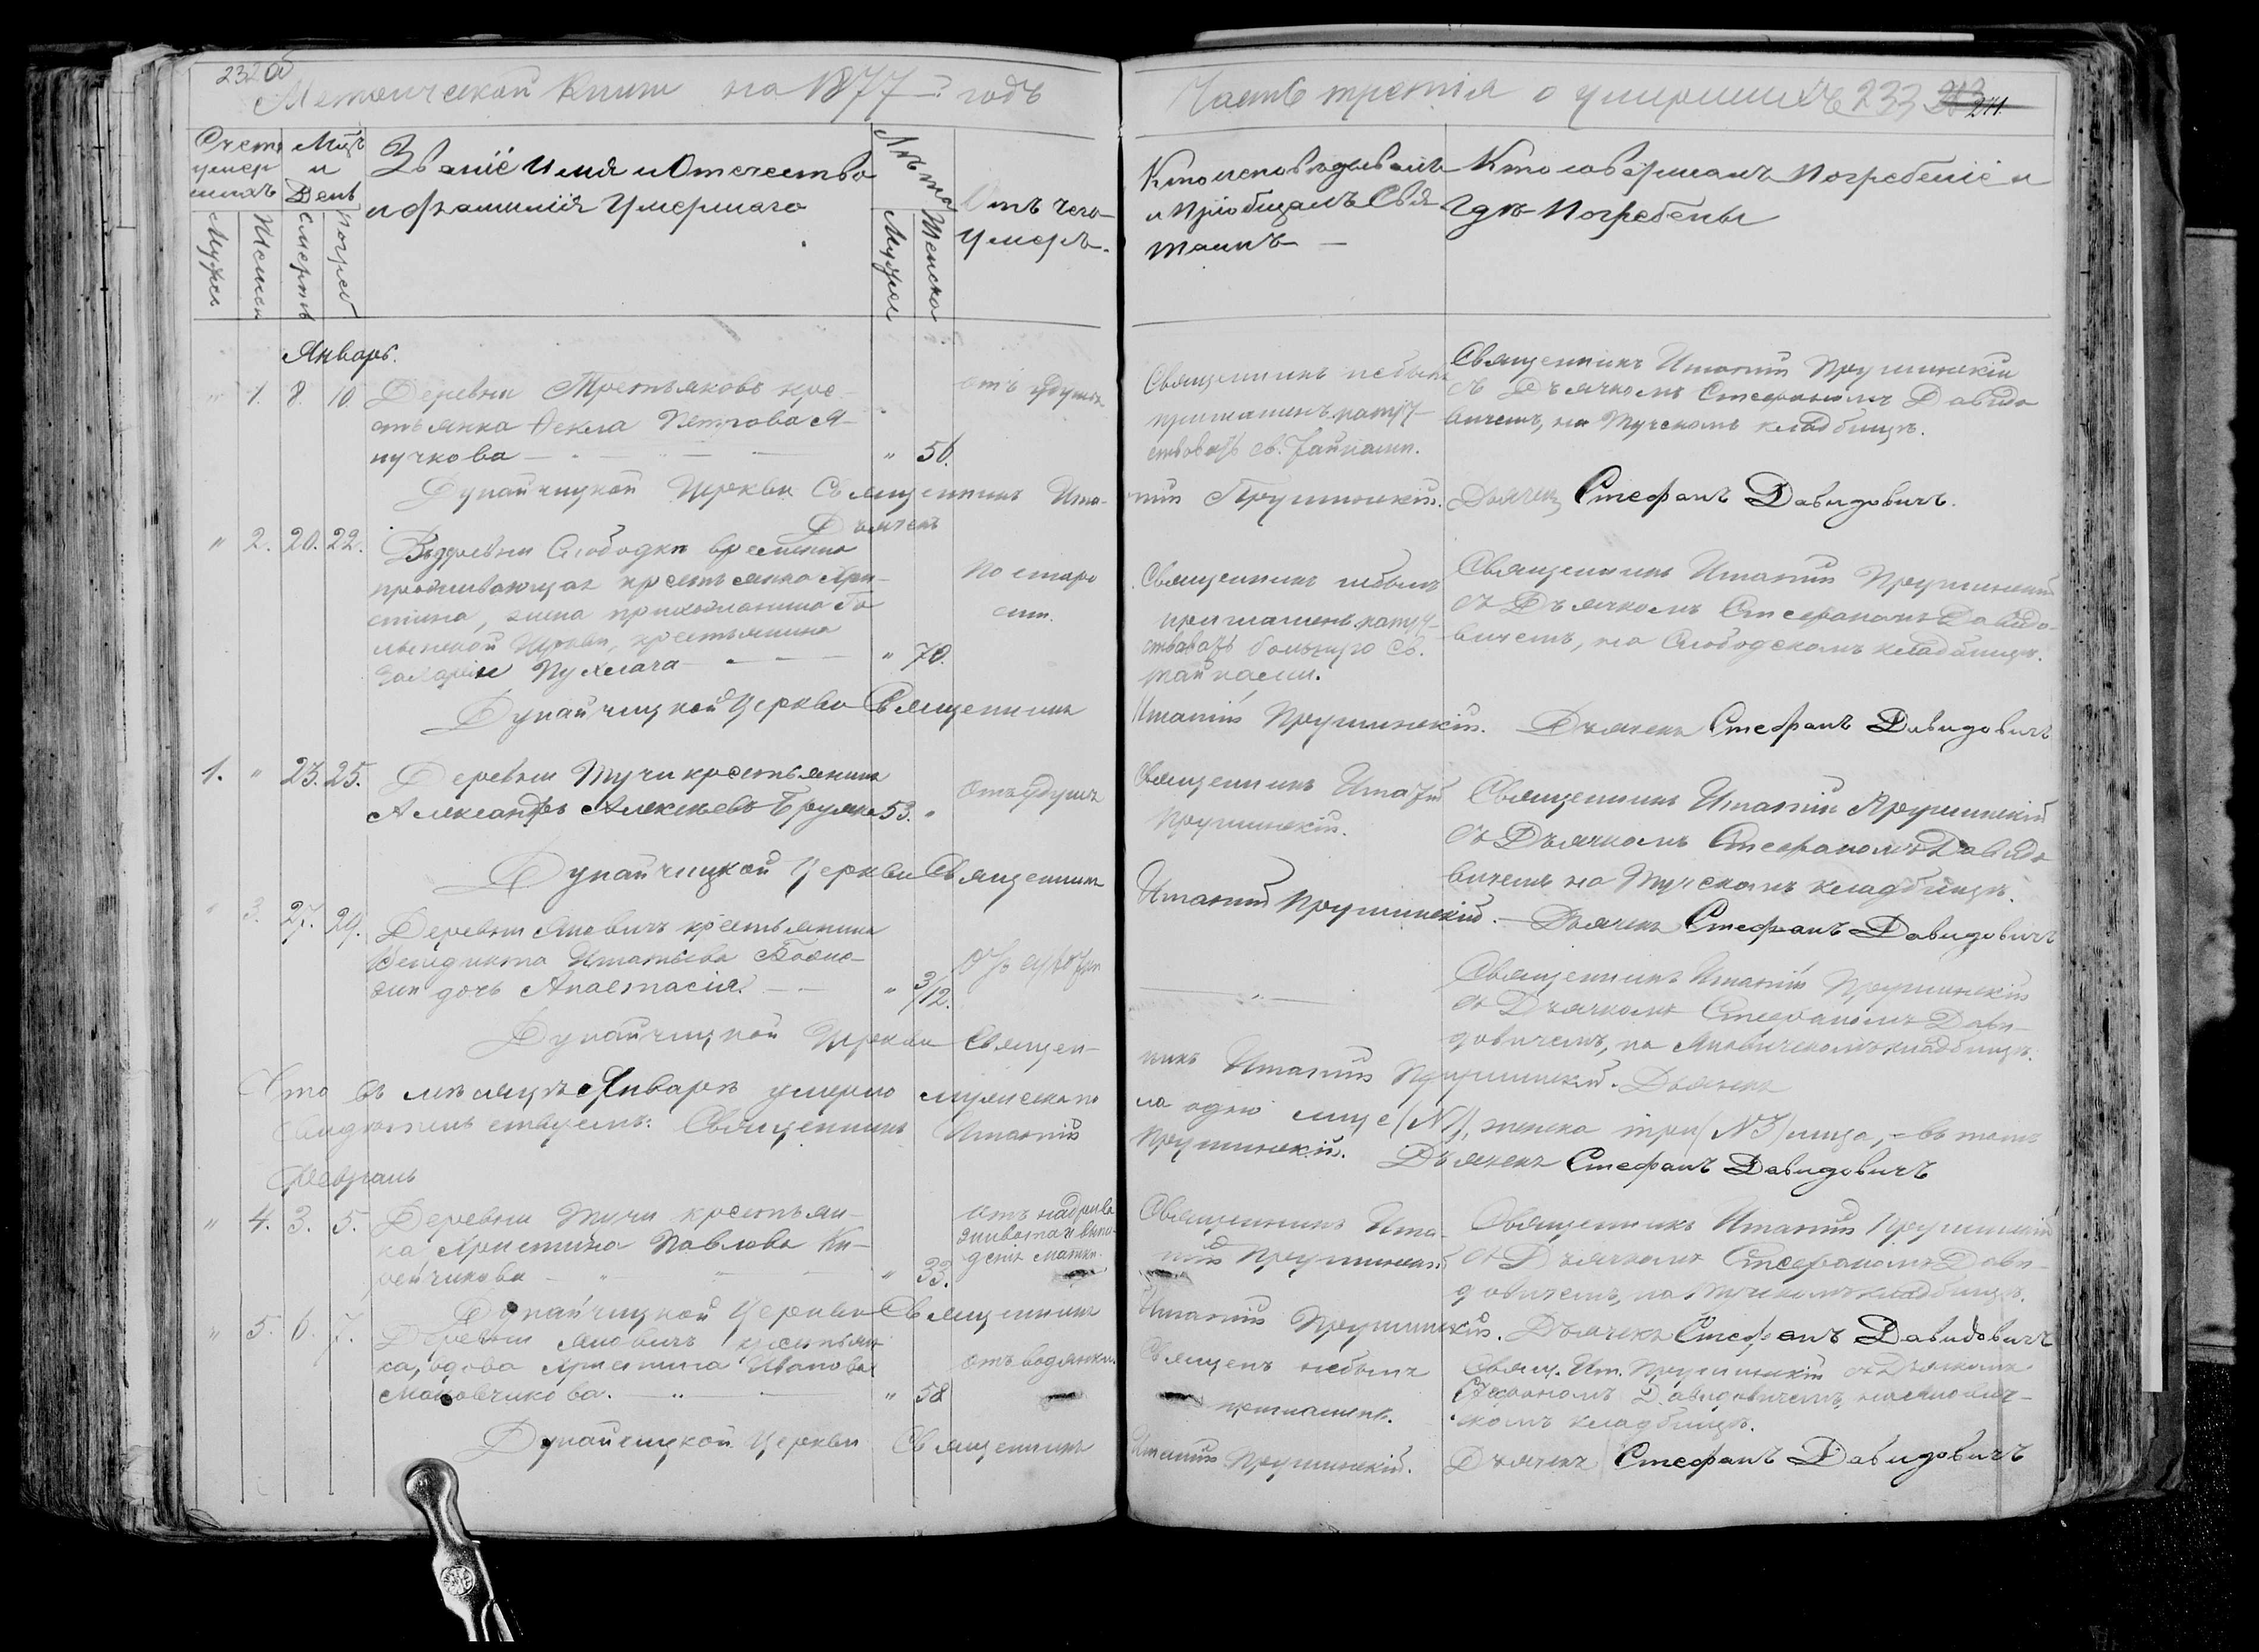 232об
Метрической книги на 1877-й годъ
Часть третія о умершихъ 233
Счетъ умершихъ
Мцъ и День
Званіе Имя и Отечество
и фамилія Умершаго
Лѣта
Отъ чего
Умеръ.
Кто исповѣдывалъ
и пріобщалъ Свя
таинъ
Кто совершалъ Погребеніе и
Гдѣ Погребены
Мужес
Женск
Смерти
Погреб
Мужеска
Женска
Январь.
" 1. 8. 10. Деревни Третьяковъ кре-
стьянка Ѳекла Петрова Я-
нучкова " 50.
Священникъ небылъ
приглашенъ напут-
ствовать св. Тайнами.
Священникъ Игнатій Прушинскій
съ Дьячкомъ Стефаномъ Давидо
вичемъ, на Тучскомъ кладбищѣ.
Дунайчицкой Церкви Священникъ Игна-
тій Прушинскій. Дьячекъ Стефанъ Давидовичъ.
Дьячекъ
" 2. 20. 22. Въ деревни Слободкѣ временно
проживающая крестьянка Хри-
стина, жена прихожанина
Церкви, крестьянина
Захаріи " 70.
по старо
сти.
Священникъ небылъ
приглашенъ напут-
ствовать больную Св.
тайнами.
Священникъ Игнатій Прушинскій
съ Дьячкомъ Стефаномъ Давидо-
вичемъ, на Слободскомъ кладбищѣ.
Дунайчицкой Церкви Священникъ
Игнатій Прушинскій. Дьячекъ Стефанъ Давидовичъ
1. " 23. 25. Деревни Тучи крестьянинъ
Александръ Алексѣевъ 53. "
отъ удушья
Священникъ Игнатій
Прушинскій.
Священникъ Игнатій Прушинскій
съ Дьячкомъ Стефаномъ Давидо
вичемъ на Тучскомъ кладбищѣ.
Дунайчицкой Церкви Священникъ
Игнатій Прушинскій. Дьячекъ Стефанъ Давидовичъ
" 3. 27. 29. Деревни Яновичъ крестьянина
Венедикта Игнатьева
дочь Анастасія. " 3/12.
Священникъ Игнатій Прушинскій
съ Дьячкомъ Стефаномъ Дави-
довичемъ, на Яновичскомъ кладбищѣ.
Дунайчицкой Церкви Священ-
никъ Игнатій Прушинскій. Дьячекъ
Что въ мѣсяцѣ Январѣ умерло мужеска по
ла одно лице (№1), женска три (№3) лица, въ томъ
свидѣтельствуемъ: Священникъ Игнатій
Прушинскій. Дьячекъ Стефанъ Давидовичъ
Февраль
" 4. 3. 5. Деревни Тучи крестьян-
ка Христина Павлова Ки-
рейчикова " 33.
отъ надрыва
живота и выпа-
денія матки.
Священникъ Игна-
тій Прушинскій
Священникъ Игнатій Прушинскій
съ Дьячкомъ Стефаномъ Дави-
довичемъ, на Тучскомъ кладбищѣ.
Дунайчицкой Церкви Священникъ
Игнатій Прушинскій. Дьячекъ Стефанъ Давидовичъ
" 5. 6. 7. Деревни Яновичъ крестьян
ка, вдова Христина Иванова
" 58
отъ водянки.
Священ. небылъ
приглашенъ.
Свящ. Игн. Прушинскій съ Дьячкомъ
Стефаномъ Давидовичемъ, на Янович-
скомъ кладбищѣ.
Дунайчицкой Церкви Священникъ
Игнатій Прушинскій. Дьячекъ Стефанъ Давидовичъ